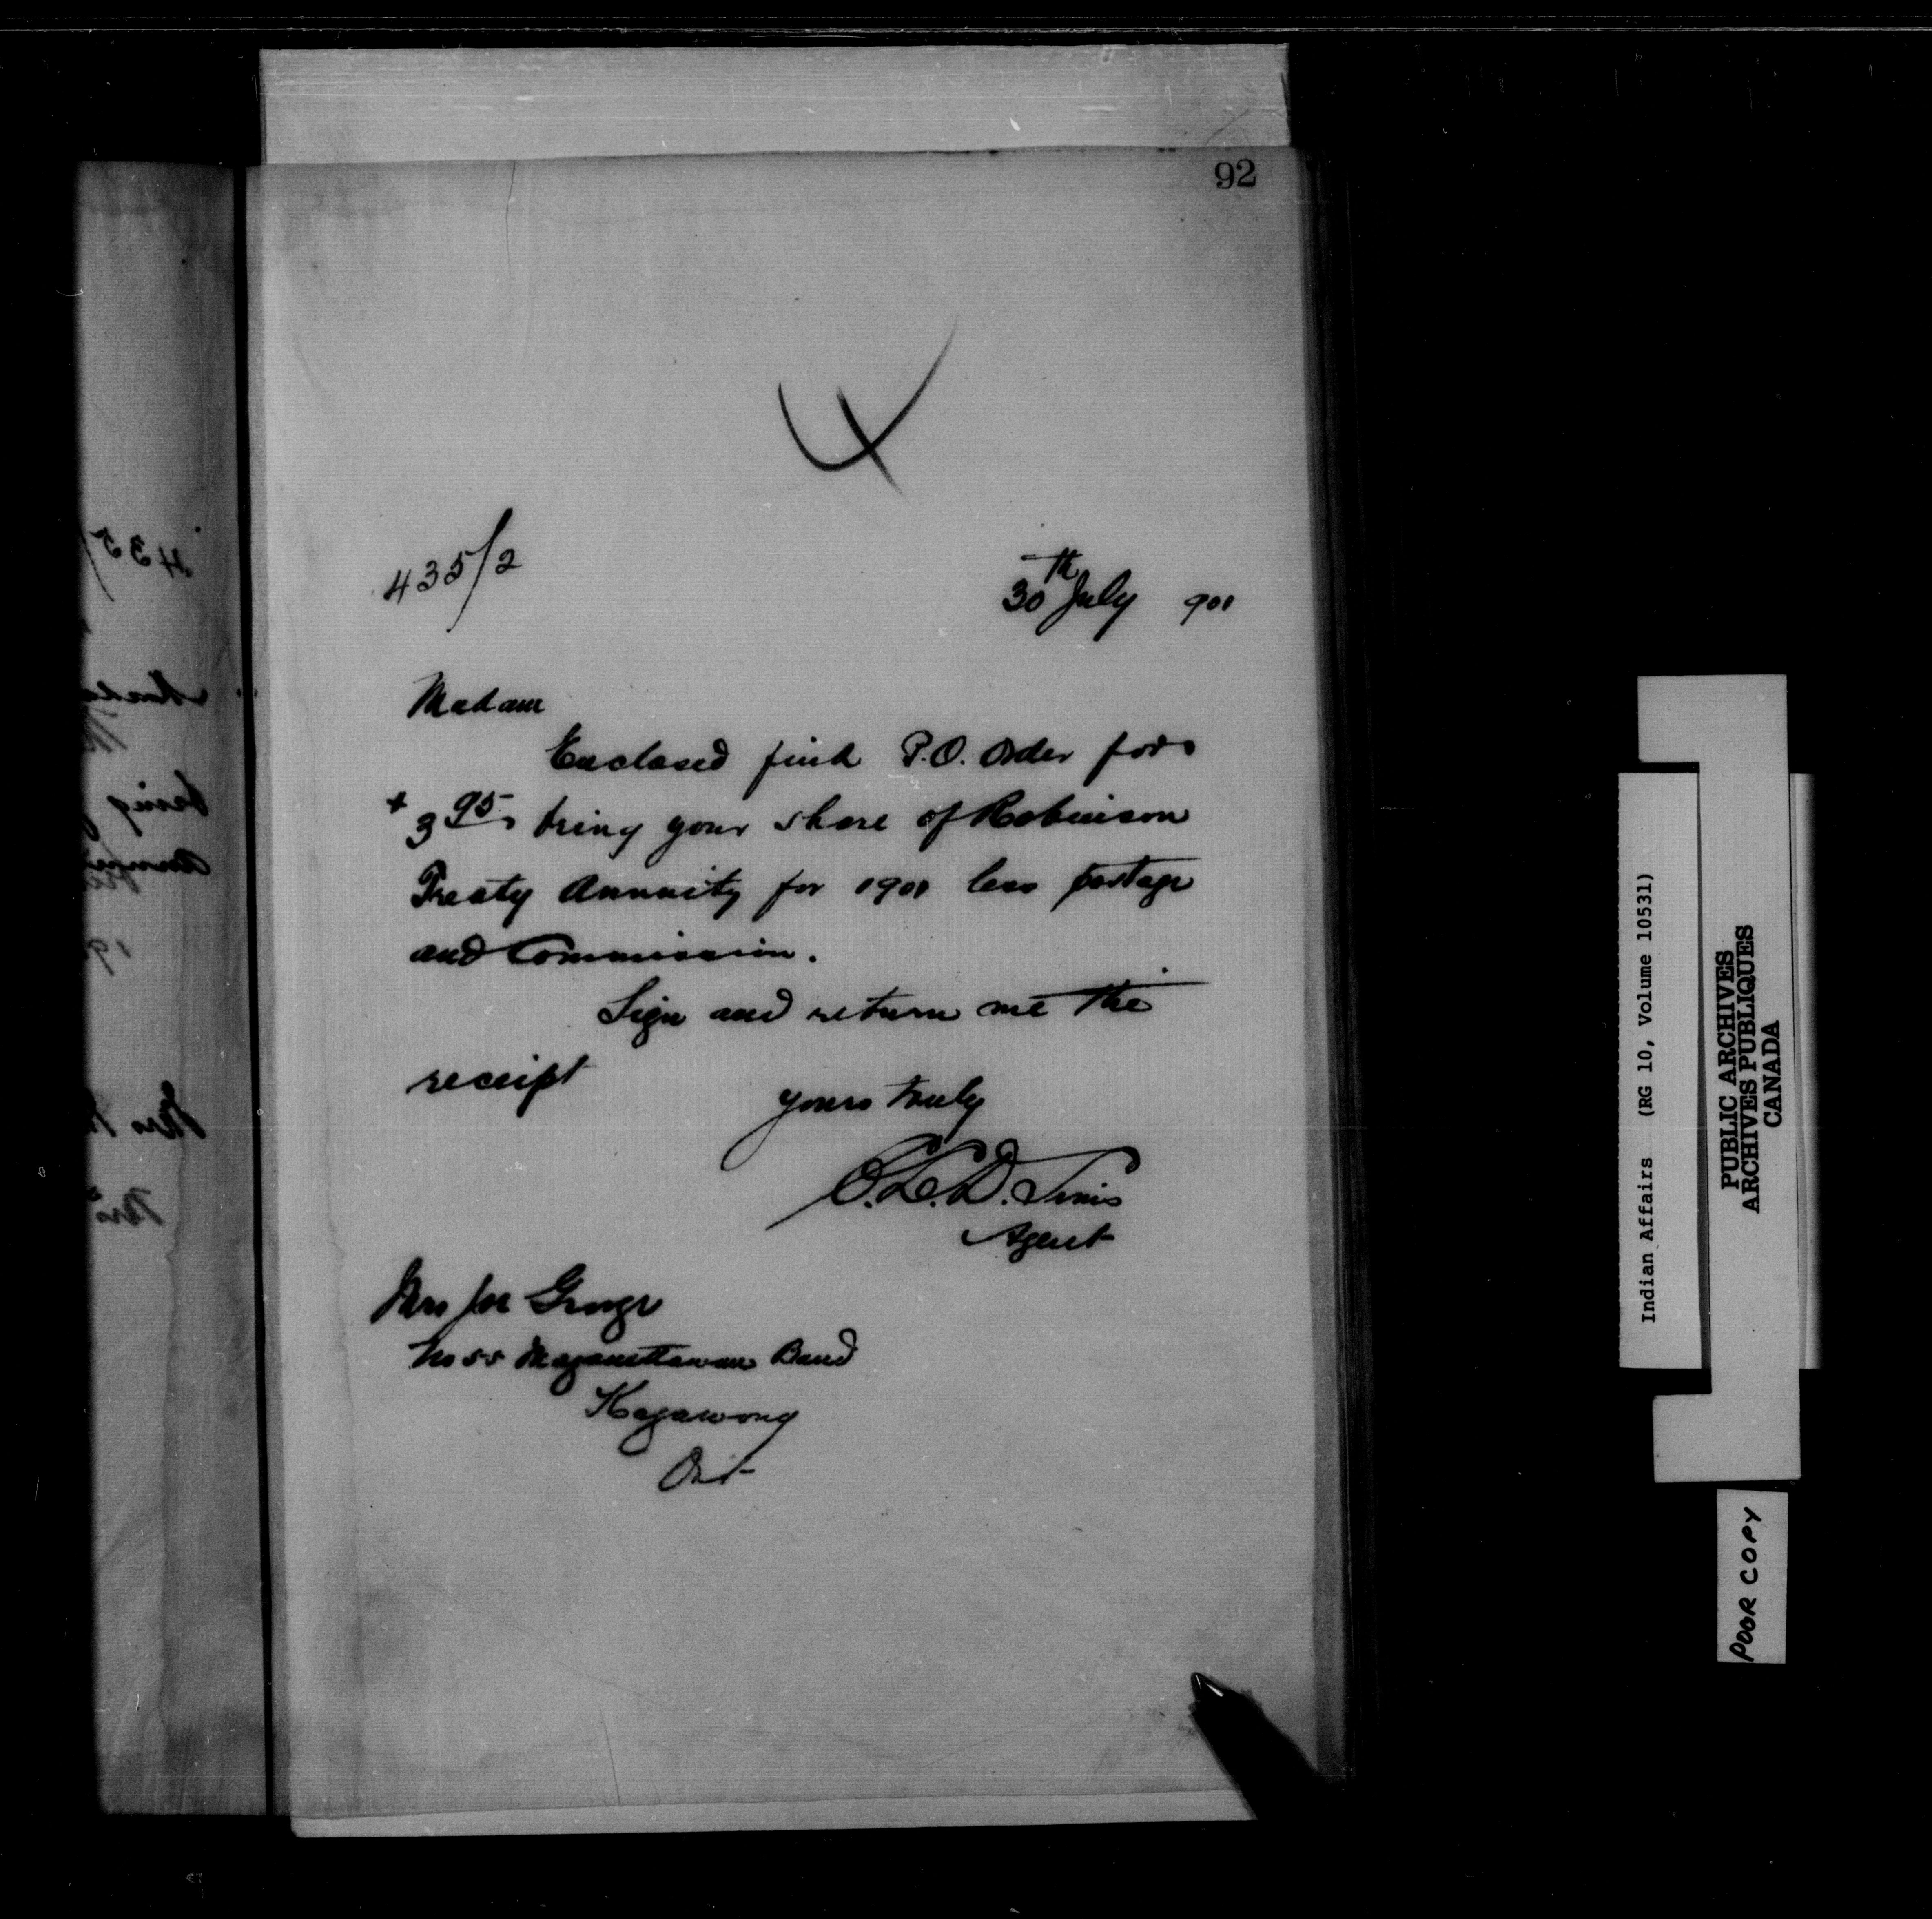 92
435/2
30th July 901
Madam
Enclosed find P.O. Order for
$3.95 being your share of Robinson
Treaty Annuity for 1901 less postage
and Commission.
Sign and return me the
receipt
yours truly
C.L.D. Sims
Agent
Mrs Joe George
No 55 Maganettawan Band
Kagawong
Ont
Indian Affairs (RG 10, Volume 10531)
PUBLIC ARCHIVES
ARCHIVES PUBLIQUES
CANADA
POOR COPY